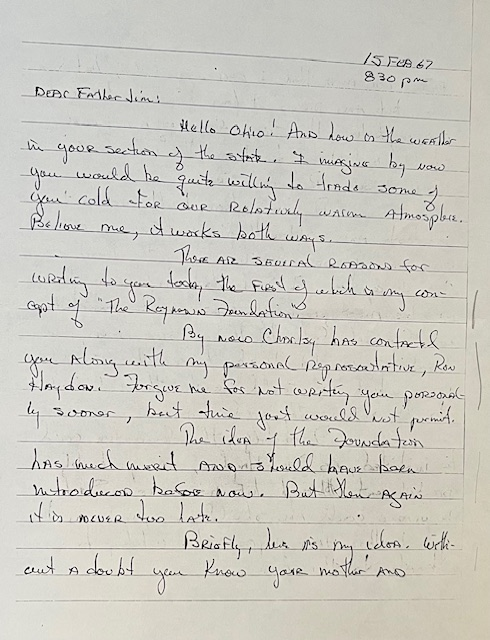 15 FEB. 67
830 pm
DEAR Father Jim:
Hello Ohio! And how is the weather
in your section of the state. I imagine by now
you would be quite willing to trade some of
you cold for our relatively warm atmosphere.
Believe me, it works both ways.
There are several reasons for
writing to you today, the first of which is my con-
cept of "The Foundation."
By now Charley has contacted
you along with my personal representative, Ron
Haydon. Forgive me for not writing you personal-
ly sooner, but time just would not permit.
The idea of the Foundation
has much merit and should have been
introduced before now. But then again
it is never too late.
Briefly, here is my idea. With-
out a doubt you know your mother and